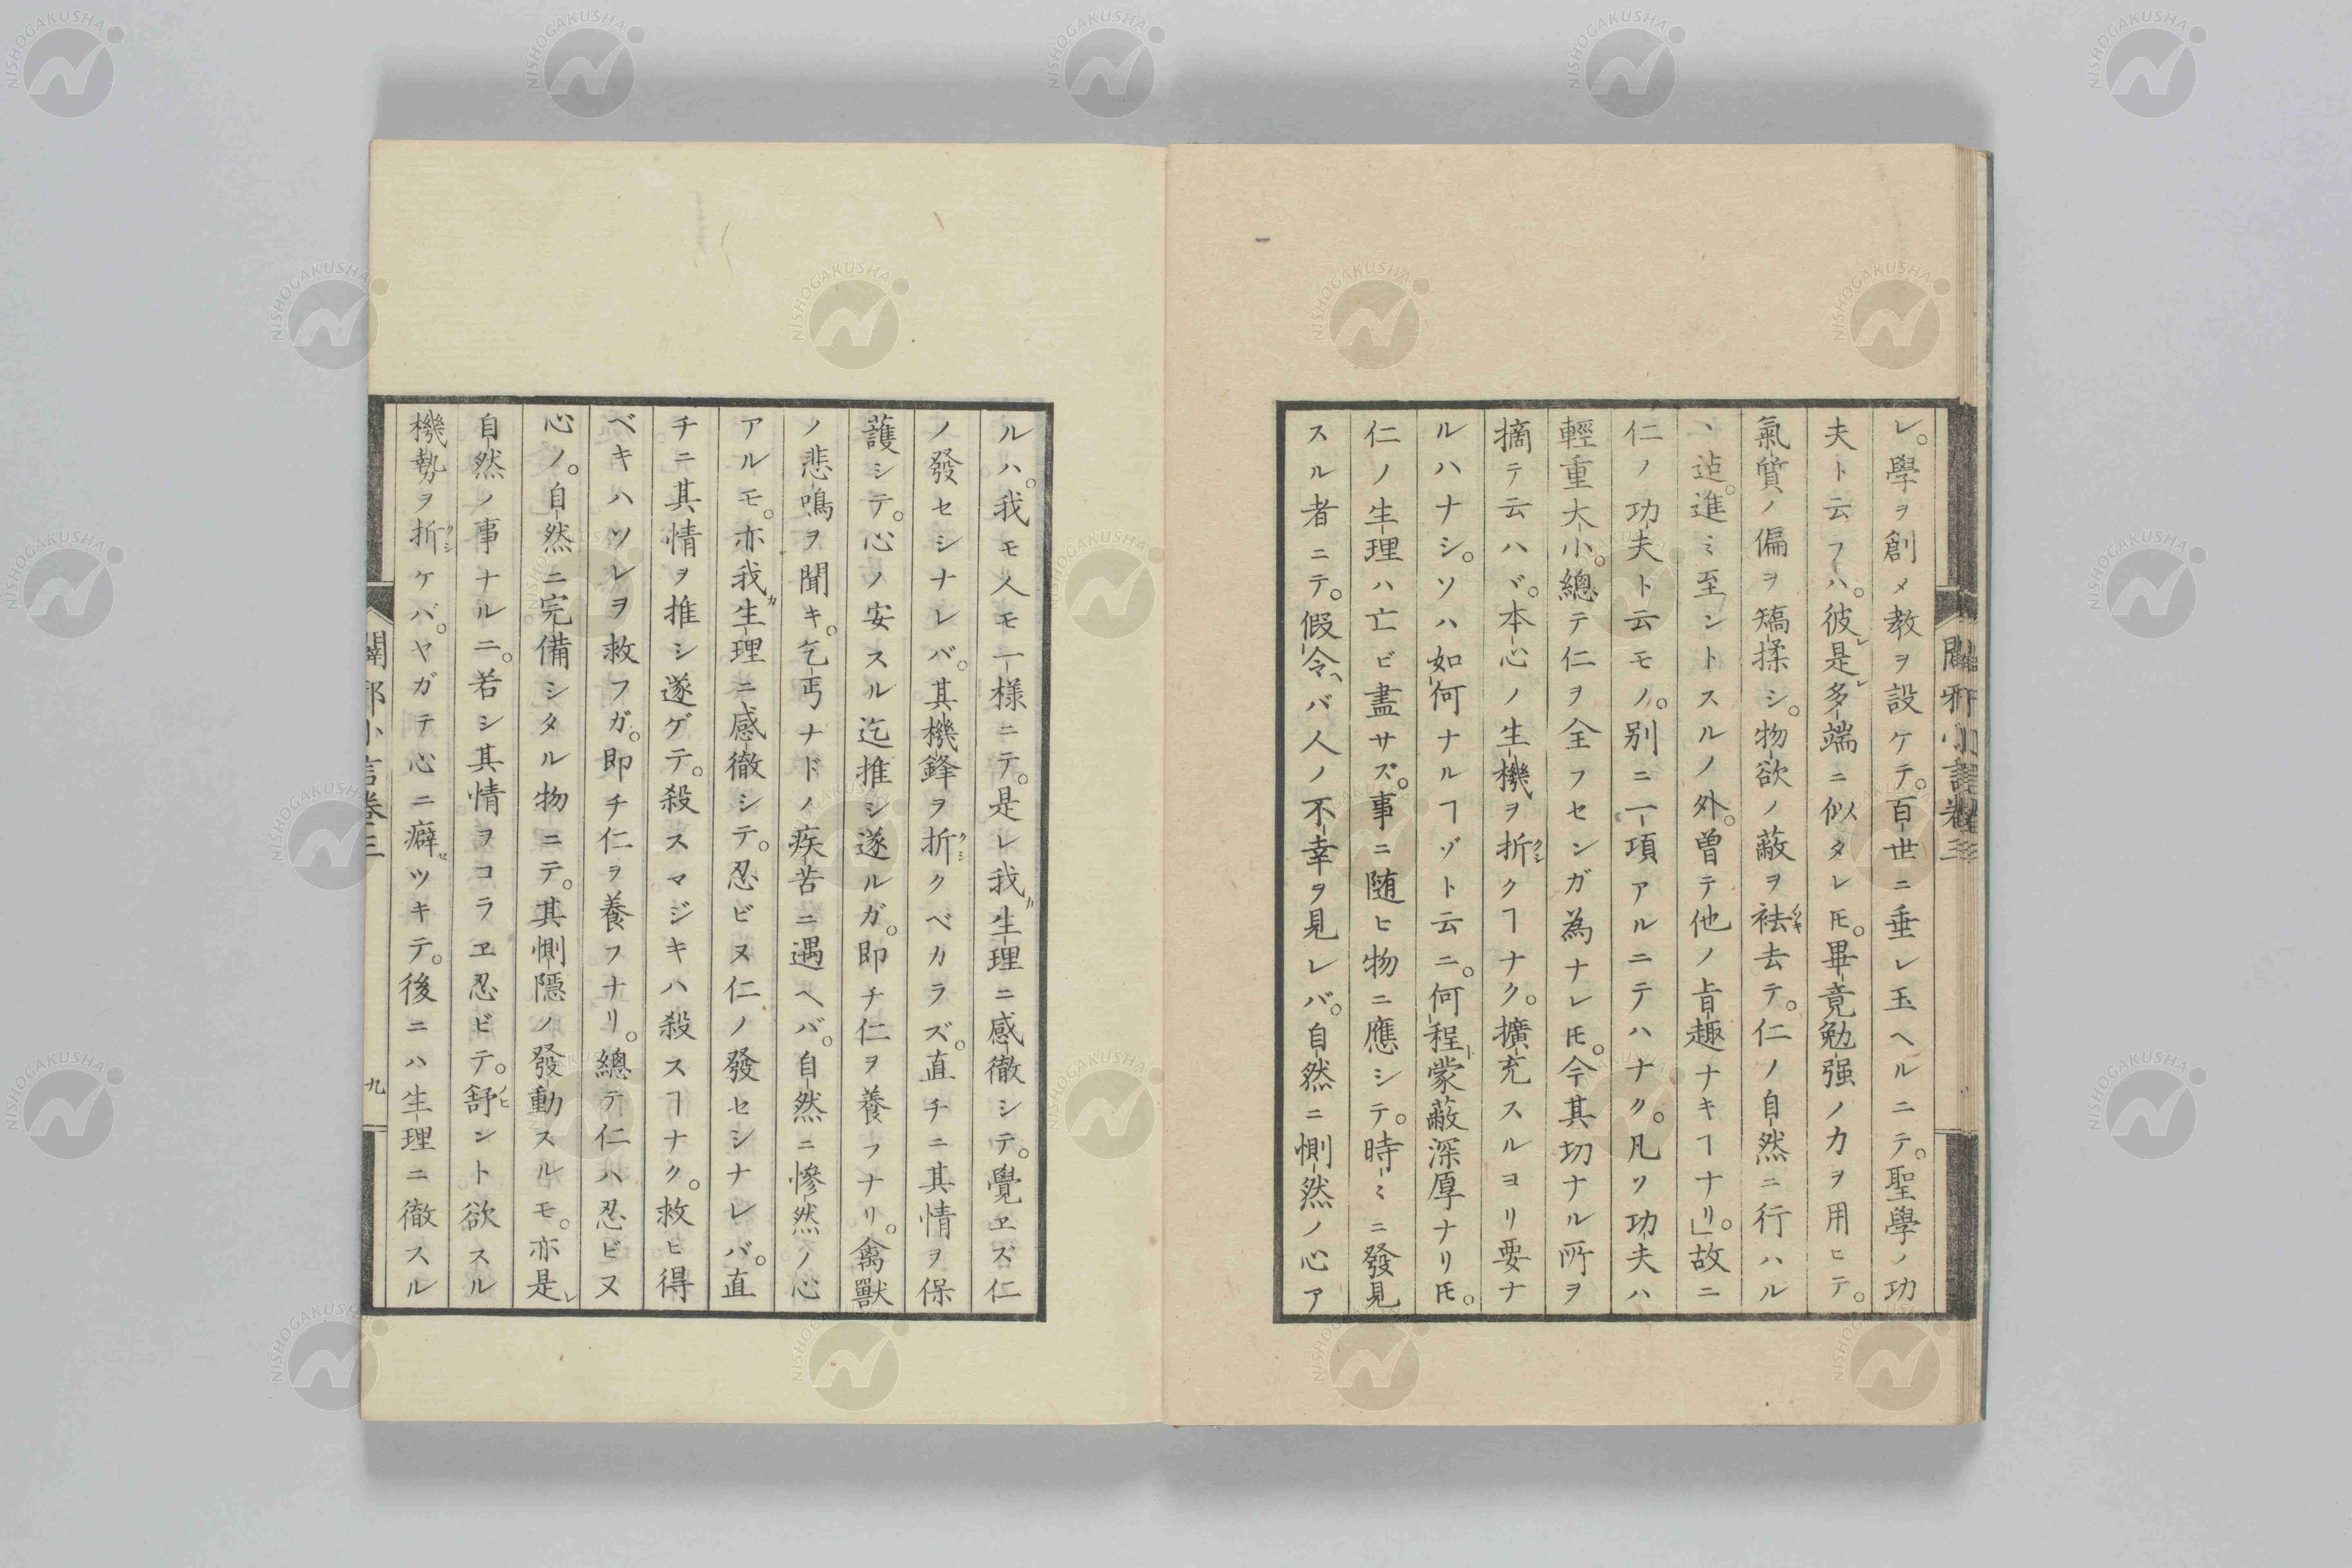 レ。學ヲ創メ教ヲ設ケテ。百世ニ垂レ玉ヘルニテ。聖學ノ功
夫ト云フハ。彼レ是レ多端ニ似タレ𪜈。畢竟勉强ノ力ヲ用ヒテ。
氣質ノ偏ヲ矯揉シ。物欲ノ蔽ヲ袪去テ。仁ノ自然ニ行ハル
ヽ迠。進ミ至ントスルノ外。曽テ他ノ旨趣ナキヿナリ」。故ニ
仁ノ功夫ト云モノ。別ニ一項アルニテハナク。凡ソ功夫ハ
輕重大小。總テ仁ヲ全フセンガ為ナレ𪜈。今其切ナル所ヲ
摘テ云ハヾ。本心ノ生機ヲ折クヿナク。擴充スルヨリ要ナ
ルハナシ。ソハ如何ナルヿゾト云ニ。何程蒙蔽深厚ナリ𪜈。
仁ノ生理ハ亡ビ盡サズ。事ニ随ヒ物ニ應シテ。時ミニ發見
スル者ニテ。假令ヘバ人ノ不幸ヲ見レバ。自然ニ惻然ノ心ア
ルハ。我モ人モ一様ニテ。是レ我カ生理ニ感徹シテ。覺ヱズ仁
ノ發セシナレバ。其機鋒ヲ折クベカラズ。直チニ其情ヲ保
護シテ。心ノ安スル迄推シ遂ルガ。即チ仁ヲ養フナリ。禽獸
ノ悲鳴ヲ聞キ。乞丐ナドノ疾苦ニ遇ヘバ。自然ニ慘然ノ心
アルモ。亦我カ生理ニ感徹シテ。忍ビヌ仁ノ發セシナレバ。直
チニ其情ヲ推シ遂ゲテ。殺スマジキハ殺スヿナク。救ヒ得
ベキハソレヲ救フガ。即チ仁ヲ養フナリ。總テ仁ハ忍ビヌ
心ノ。自然ニ完備シタル物ニテ。其惻隱ノ發動スルモ。亦是レ
自然ノ事ナルニ。若シ其情ヲコラヱ忍ビテ。舒ント欲スル
機勢ヲ折ケバ。ヤガテ心ニ癖ツキテ。後ニハ生理ニ徹スル
闢邪小言卷三
九